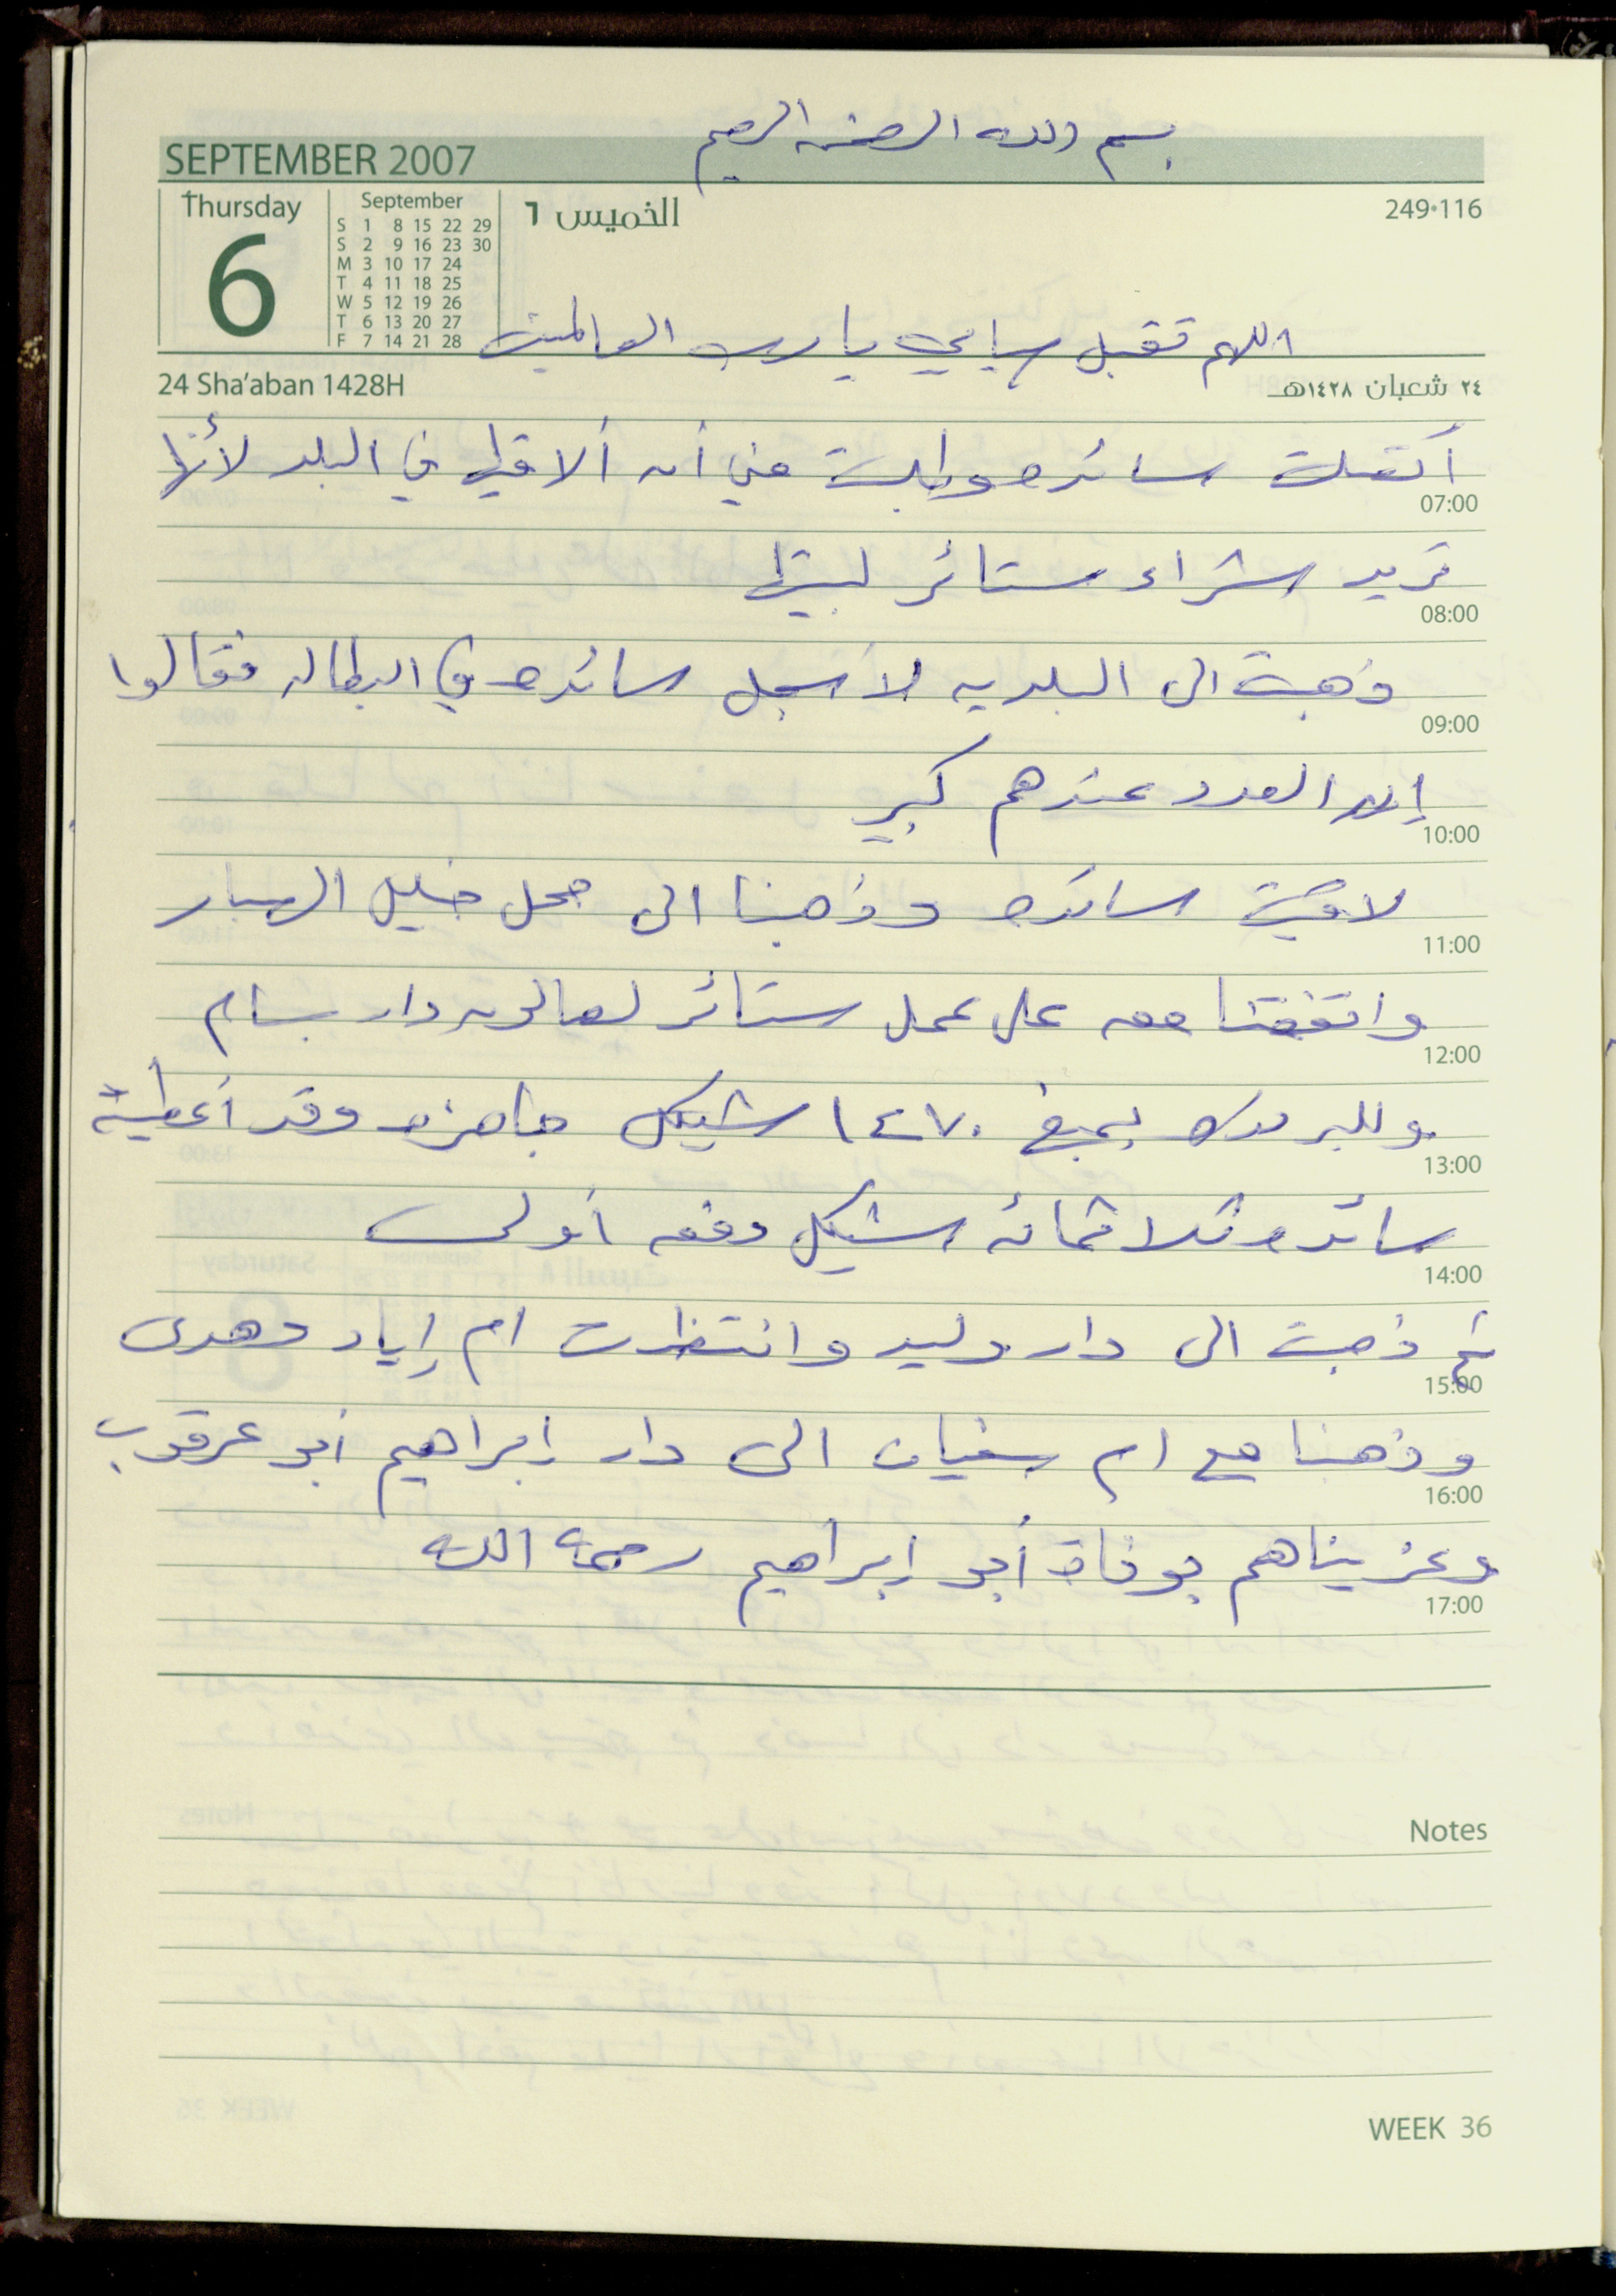 بسم الله الرحمن الرحيم
SEPTEMBER 2007
Thursday
6
September
S 1 8 15 22 29
S 2 9 16 23 30
M 3 10 17 24
T 4 11 18 25
W 5 12 19 26
T 6 13 20 27
F 7 14 21 28
الخميس ٦
249•116
اللهم تقبل يا رب العالمين
24 Sha'aban 1428H
٢٤ شعبان ١٤٢٨هـ
اتصلت سائده وطلبت مني أن ألاقيها في البلد لأنها
07:00
تريد شراء ستائر لبيتها
08:00
ذهبت الى البلديه لأسجل سائده في البطاله فقالوا
09:00
إن العدد عندهم كبير
10:00
لاقيت سائده وذهبنا الى محل خليل
11:00
واتفقنا معه على عمل ستائر لصالون دار بسام
12:00
وللبرنده بمبلغ ١٤٧٠ شيكل جاهزه وقد أعطيت
13:00
سائده ثلاثمائه شيكل دفعه أولى
14:00
ثم ذهبت الى دار وليد وانتظرت ام إياد وهدى
15:00
وذهبنا مع ام سفيان الى دار إبراهيم أبو عرقوب
16:00
وعزيناهم بوفاة أبو إبراهيم رحمه الله
17:00
Notes
WEEK 36